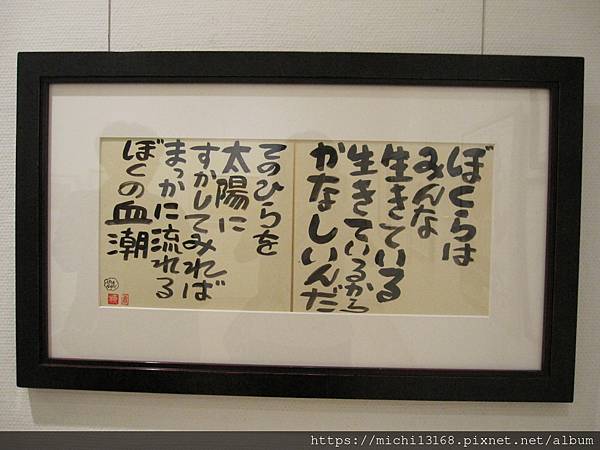 ぼくらは
みんな
生きている
生きているから
かなしいんだ
てのひらを
太陽に
すかしてみれば
まっかに流れる
ぼくの血潮
https://michi13168.pixnet.net/album